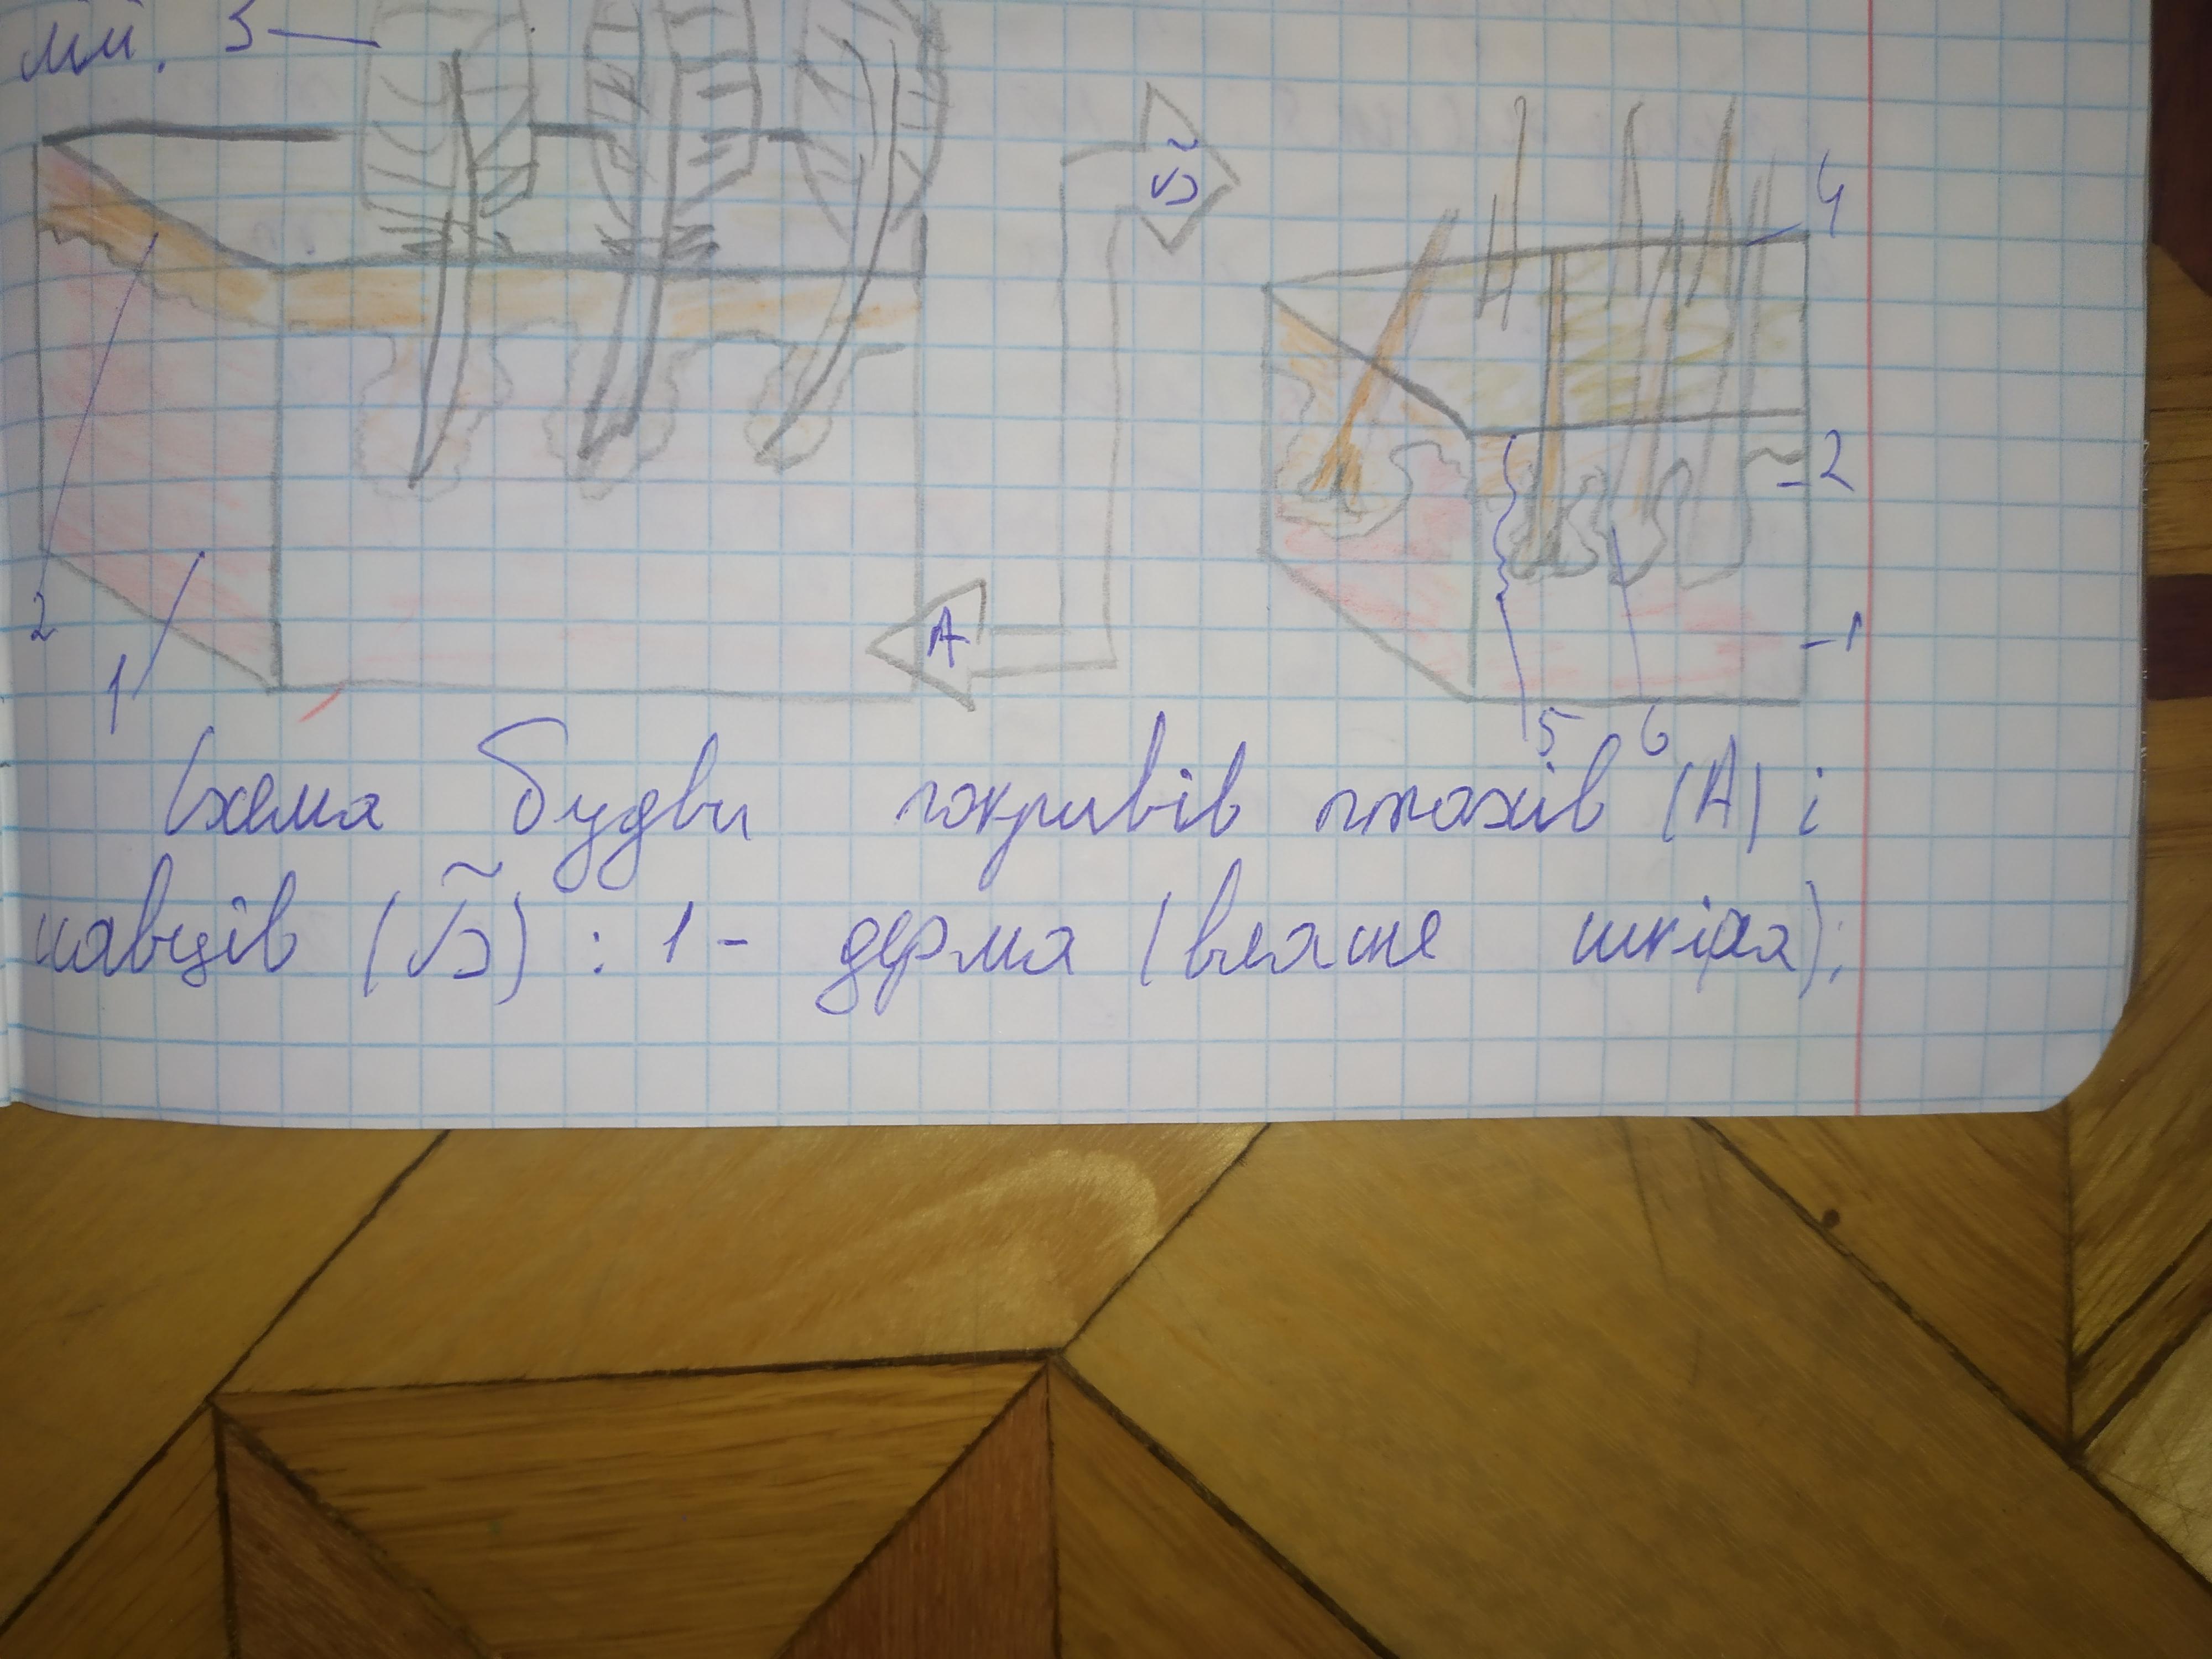 лій. 3
Б
4
2
А
2
1
1
5 6
Схема будви покривів птахів (А) і
савців (Б) : 1 - дерма (власне шкіра);